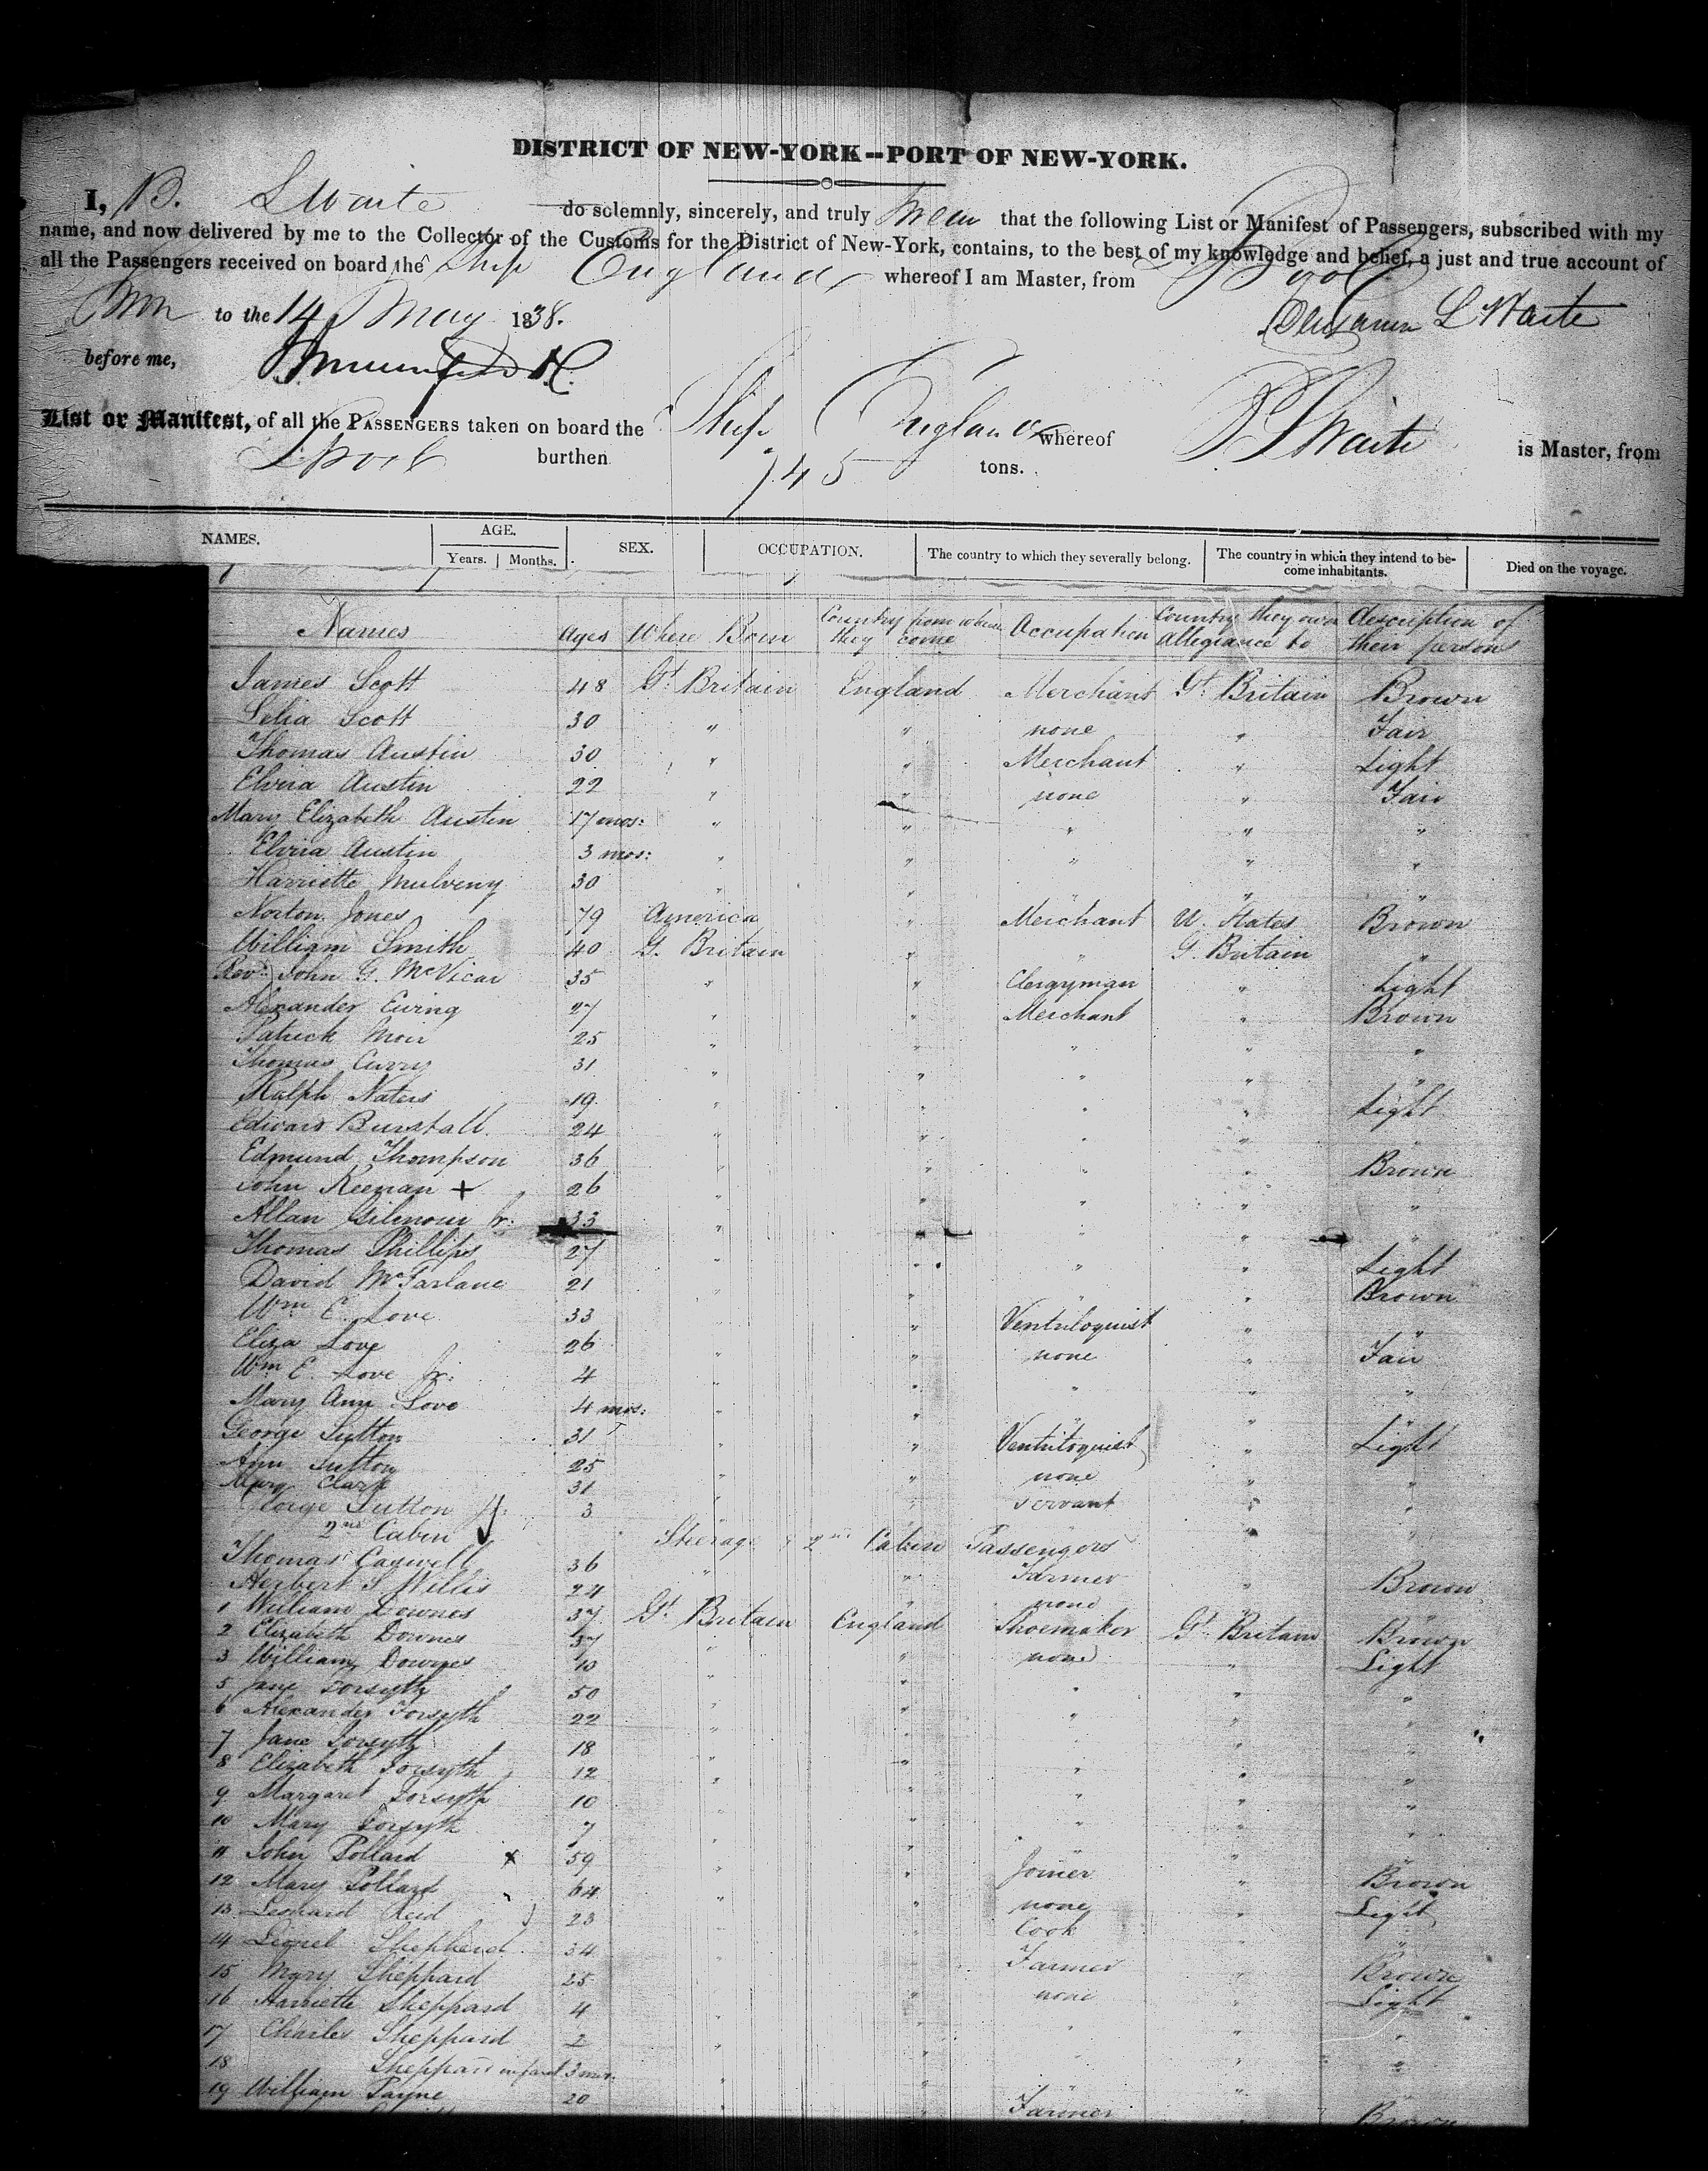 DISTRICT OF NEW-YORK--PORT OF NEW-YORK.
I, B. L Waite do solemnly, sincerely, and truly swear that the following List or Manifest of Passengers, subscribed with my
name, and now delivered by me to the Collector of the Customs for the District of New-York, contains, to the best of my knowledge and belief, a just and true account of
all the Passengers received on board the Ship England whereof I am Master, from L'pool
to the 14 May 1838. Benjamin L Waite
before me,
List or Manifest, of all the PASSENGERS taken on board the Ship England whereof B L Waite is Master, from
L'pool burthen 745 tons.
NAMES. AGE. Years. Months. SEX. OCCUPATION. The country to which they severally belong. The country in which they intend to become inhabitants. Died on the voyage.
Names Ages Where Born Country from whence they come Occupation Country they owe allegiance to description of their persons
James Scott 48 Gt Britain England Merchant Gt Britain Brown
Lelia Scott 30 " " none " Fair
Thomas Austin 30 " " Merchant " Light
Elvira Austin 22 " " none " Fair
Mary Elizabeth Austin 17 mos: " " " " "
Elvira Austin 3 mos: " " " " "
Harriette Mulveny 30 " " " " "
Norton Jones 79 America " Merchant U. States Brown
William Smith 40 G. Britain " " G. Britain "
Revd John G. McVicar 35 " " Clergyman " Light
Alexander Ewing 27 " " Merchant " Brown
Patrick Moir 25 " " " " "
Thomas Curry 31 " " " " "
Ralph Naters 19 " " " " Light
Edward Burstall 24 " " " " "
Edmund Thompson 36 " " " " Brown
John Keenan + 26 " " " " "
Allan Gilmour Jr. 33 " " " " "
Thomas Phillips 27 " " " " Light
David McFarlane 21 " " " " Brown
Wm E. Love 33 " " Ventriloquist " "
Eliza Love 26 " " none " Fair
Wm E. Love Jr. 4 " " " " "
Mary Ann Love 4 mos: " " " " "
George Sutton 31 " " Ventriloquist " Light
Ann Sutton 25 " " none " "
Mary Clark 31 " " Servant " "
George Sutton Jr. 3 " " " " "
2nd Cabin Steerage & 2nd Cabin Passengers
Thomas Caswell 36 " " Farmer " Brown
Herbert S Willis 24 " " none " "
1 William Downes 37 Gt Britain England Shoemaker Gt Britain Brown
2 Elizabeth Downes 37 " " none " Light
3 William Downes 10 " " " " "
5 Jane Forsyth 50 " " " " "
6 Alexander Forsyth 22 " " " " "
7 Jane Forsyth 18 " " " " "
8 Elizabeth Forsyth 12 " " " " "
9 Margaret Forsyth 10 " " " " "
10 Mary Forsyth 7 " " " " "
11 John Pollard x 59 " " Joiner " Brown
12 Mary Pollard 64 " " none " Light
13 Leonard Reid 23 " " Cook " "
14 Lionel Shepherd 34 " " Farmer " Brown
15 Mary Sheppard 25 " " none " Light
16 Harriette Sheppard 4 " " " " "
17 Charles Sheppard 2 " " " " "
18 Sheppard infant 3 mos. " " " " "
19 William Payne 20 " " Farmer " Brown